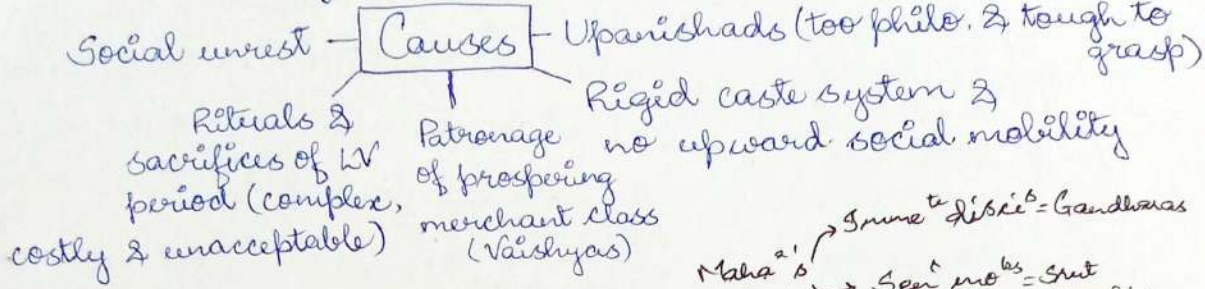 Social unrest - Causes - Upanishads (too philo. & tough to
grasp)
Rituals &
sacrifices of LV
period (complex,
costly & unacceptable)
Patronage
of prospering
merchant class
(Vaishyas)
Rigid caste system &
no upward social mobility
= Gandharas
Maha